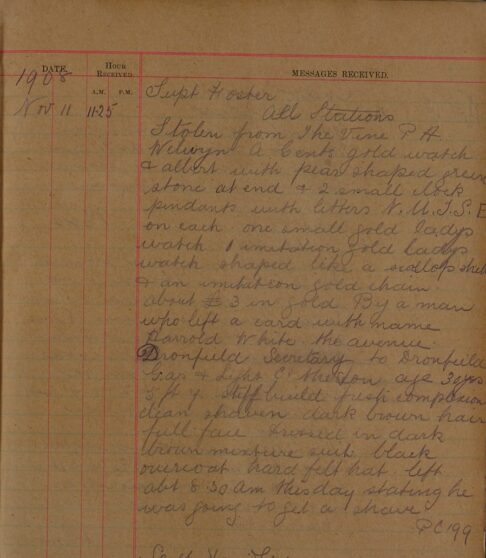 DATE. HOUR RECEIVED. MESSAGES RECEIVED.
A.M. P.M.
1908
Nov 11 11.25 Supt Foster
All Stations
Stolen from The Vine P H
Welwyn A Gents gold watch
& albert with pear shaped green
stone at end & 2 small clock
pendants with letters N.U.T.S.E
on each one small gold ladys
watch 1 imitation gold ladys
watch shaped like a scallop shell
& an imitation gold chain
about £3 in gold By a man
who left a card with name
Harrold White the avenue
Dronfield Secretary to Dronfield
Gas & Light Co age
5 ft 7 stiff build fresh complexion
clean shaven dark brown hair
full face Dressed in dark
brown mixture suit black
overcoat hard felt hat left
abt 8.30 am this day stating he
was going to get a shave
PC 199